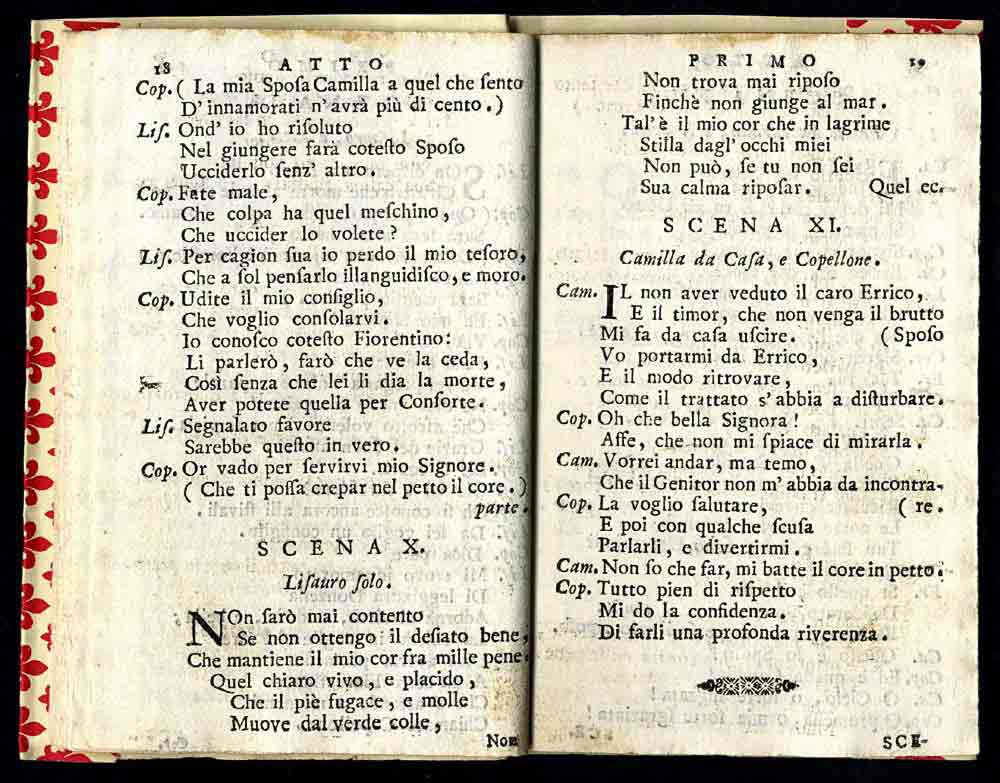 18 ATTO
Cop. ( La mia Spoſa Camilla a quel che ſento
D' innamorati n' avrà più di cento. )
Liſ. Ond' io ho riſoluto
Nel giungere farà coteſto Spoſo
Ucciderlo ſenz' altro.
Cop. Fate male,
Che colpa ha quel meſchino,
Che uccider lo volete ?
Liſ. Per cagion ſua io perdo il mio teſoro,
Che a ſol penſarlo illanguidiſco, e moro.
Cop. Udite il mio conſiglio,
Che voglio conſolarvi.
Io conoſco coteſto Fiorentino:
Li parlerò, farò che ve la ceda,
Così ſenza che lei li dia la morte,
Aver potete quella per Conſorte.
Liſ. Segnalato favore
Sarebbe queſto in vero.
Cop. Or vado per ſervirvi mio Signore.
( Che ti poſſa crepar nel petto il core. )
parte.
SCENA X.
Liſauro ſolo.
NOn ſarò mai contento
Se non ottengo il deſiato bene,
Che mantiene il mio cor fra mille pene.
Quel chiaro vivo, e placido,
Che il piè fugace, e molle
Muove dal verde colle,
Non
PRIMO 19
Non trova mai ripoſo
Finchè non giunge al mar.
Tal' è il mio cor che in lagrime
Stilla dagl' occhi miei
Non può, ſe tu non ſei
Sua calma ripoſar. Quel ec.
SCENA XI.
Camilla da Caſa, e Copellone.
Cam. IL non aver veduto il caro Errico,
E il timor, che non venga il brutto
Mi fa da caſa uſcire. ( Spoſo
Vo portarmi da Errico,
E il modo ritrovare,
Come il trattato s' abbia a diſturbare.
Cop. Oh che bella Signora !
Affe, che non mi ſpiace di mirarla.
Cam. Vorrei andar, ma temo,
Che il Genitor non m' abbia da incontra-
Cop. La voglio ſalutare, ( re.
E poi con qualche ſcuſa
Parlarli, e divertirmi.
Cam. Non ſo che far, mi batte il core in petto.
Cop. Tutto pien di riſpetto
Mi do la confidenza.
Di farli una profonda riverenza.
SCE-